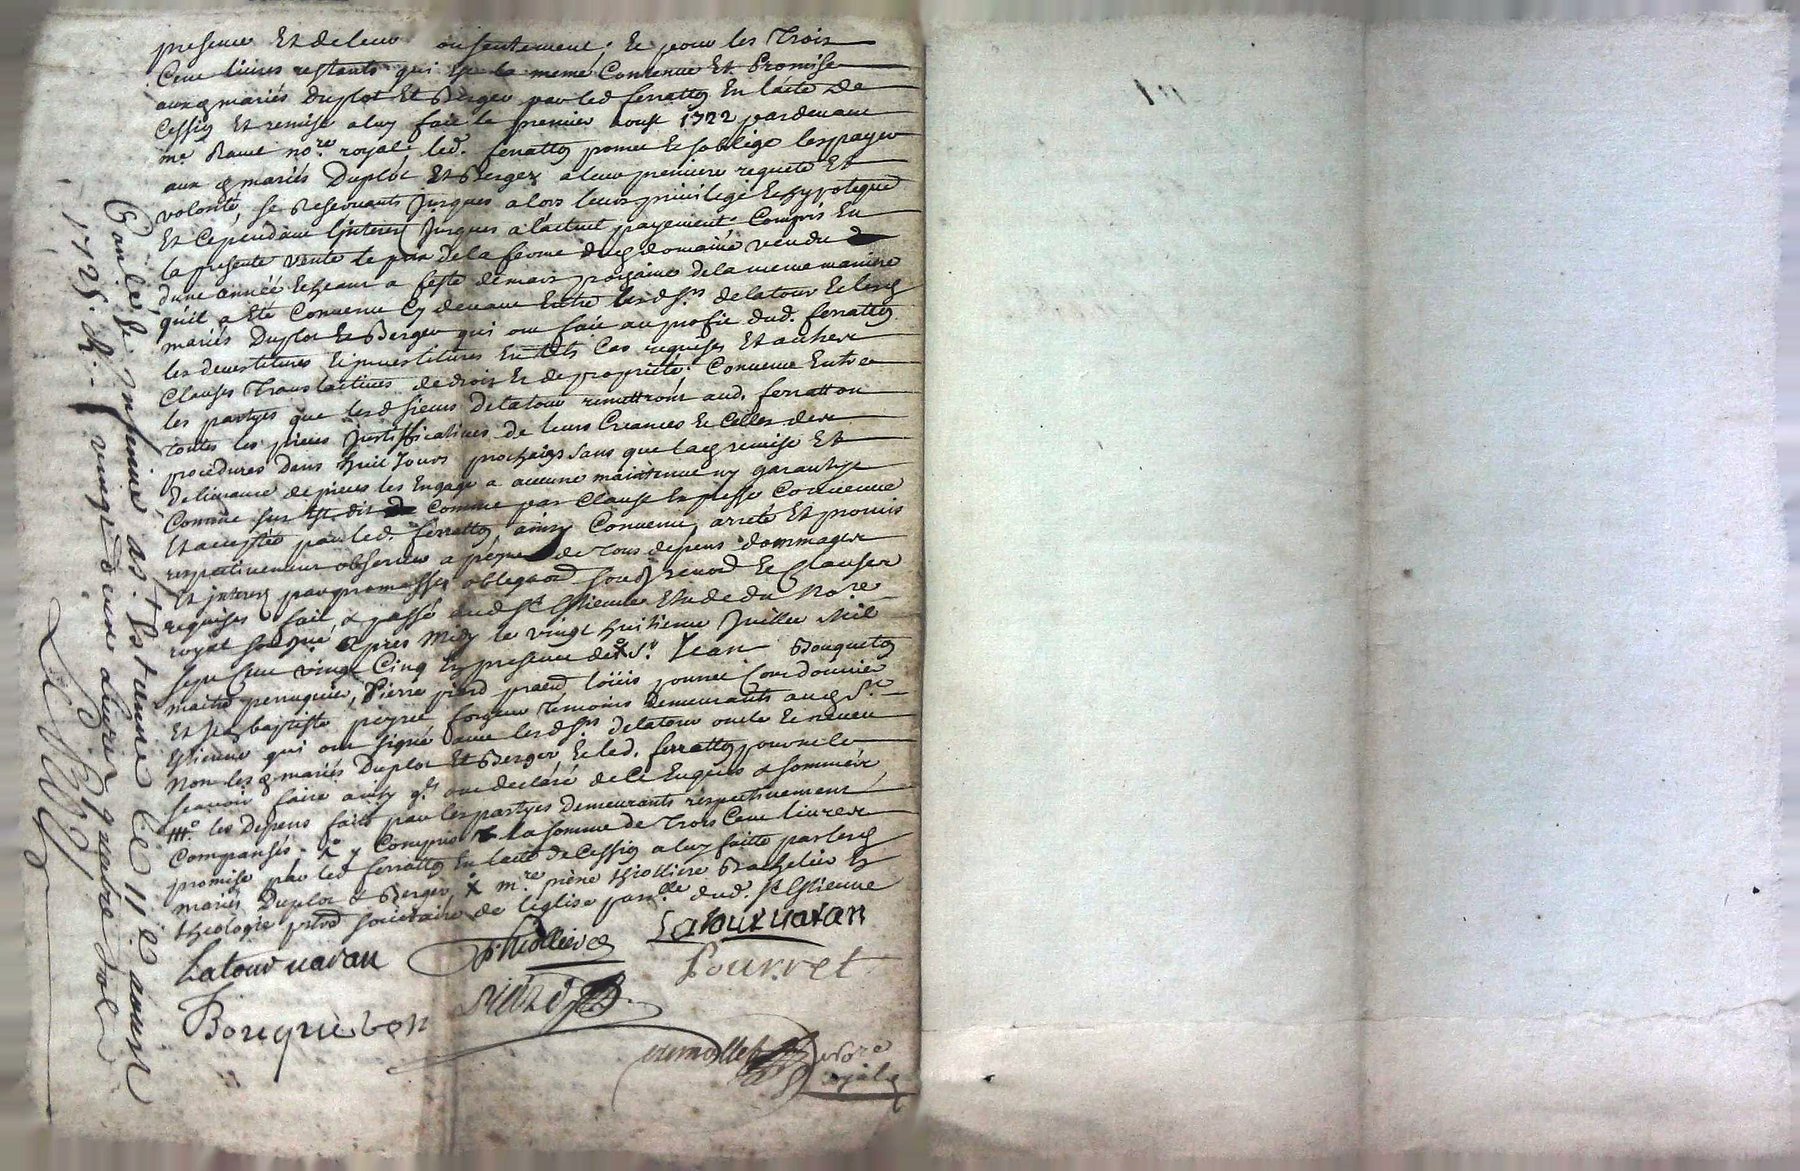 presence Et de leur consentement; Et pour les Trois
Cent livres restants qui est la meme Convenue Et Promise
aux d mariés Duplot Et Berger par led ferratton En l'acte de
Cession Et remise a luy faite le premier aoust 1722 pardevant
me Ravel nore royal: led. ferratton promet Et s'oblige les payer
aux d mariés Duplot Et Berger a leur premiere requete Et
volonté, se Reservants Jusques alors leurs privilege Et hypoteque
Et Cependant l'interest Jusques a l'actuel payement Compris En
la presente vente le prix de la ferme dud domaine vendu
d'une année Echeant a feste de mars prochaine de la meme maniere
qu'il a Eté Convenu Cy devant Entre lesd srs delatour Et lesd
mariés Duplot Et Berger qui ont fait au profit dud. ferratton
les devestitures Et investitures En tels Cas requises Et autres
Clauses Translactives de droit Et de propriété: Convenu Entre
les partyes que lesd sieurs Delatour remettront aud. ferratton
toutes les pieces Justifficatives de leurs Creances Et Celles des
procedures Dans huit Jours prochains sans que lad remise Et
Delivrance de pieces les Engage a aucune maintenue ny garantye
Comme sus Est dit Comme par Clause Expresse Convenue
Et acceptée par led. ferratton ainsy Convenu, arreté Et promis
respectivement observer a peyne de Tous depens dommages
Et interest par promesses obligaon soub renon Et Clauses
requises fait & passé aud St Estienne Etude du Nore
royal soubné apres Midy le vingt huitieme Juillet Mil
sept Cent vingt Cinq En presence de x Sr. Jean Bouqueton
maitre perruquier, Pierre piard praed, loüis pourret Cordonnier
Et Jn baptiste peyret forgeur Temoins Demeurants aud St
Estienne qui ont signé avec lesd srs delatour oncle Et neveu
Non lesd mariés Duplot Et Berger Et led. ferratton pour ne le
scavoir faire ainsy qils ont declaré de Ce Enquis & sommés,
les Depens faits par les partyes Demeurants respectivement
Compansés - y Compris la somme de Trois Cent livres
promise par led ferratton En l'acte de Cession a luy faitte par lesd
mariés Duplot & Berger x mre pierre thiolliere Bachelier En
theologie pbre societaire de l'eglise parlle dud. St Estienne
Latour varan
P. thiolliere
Latour varan
Pourret
Piard
Bouqueton
Nore
royal
Controllé & Insinué a St Estienne le 11e aoust
1725. R. vingt d'une livre quatre sols